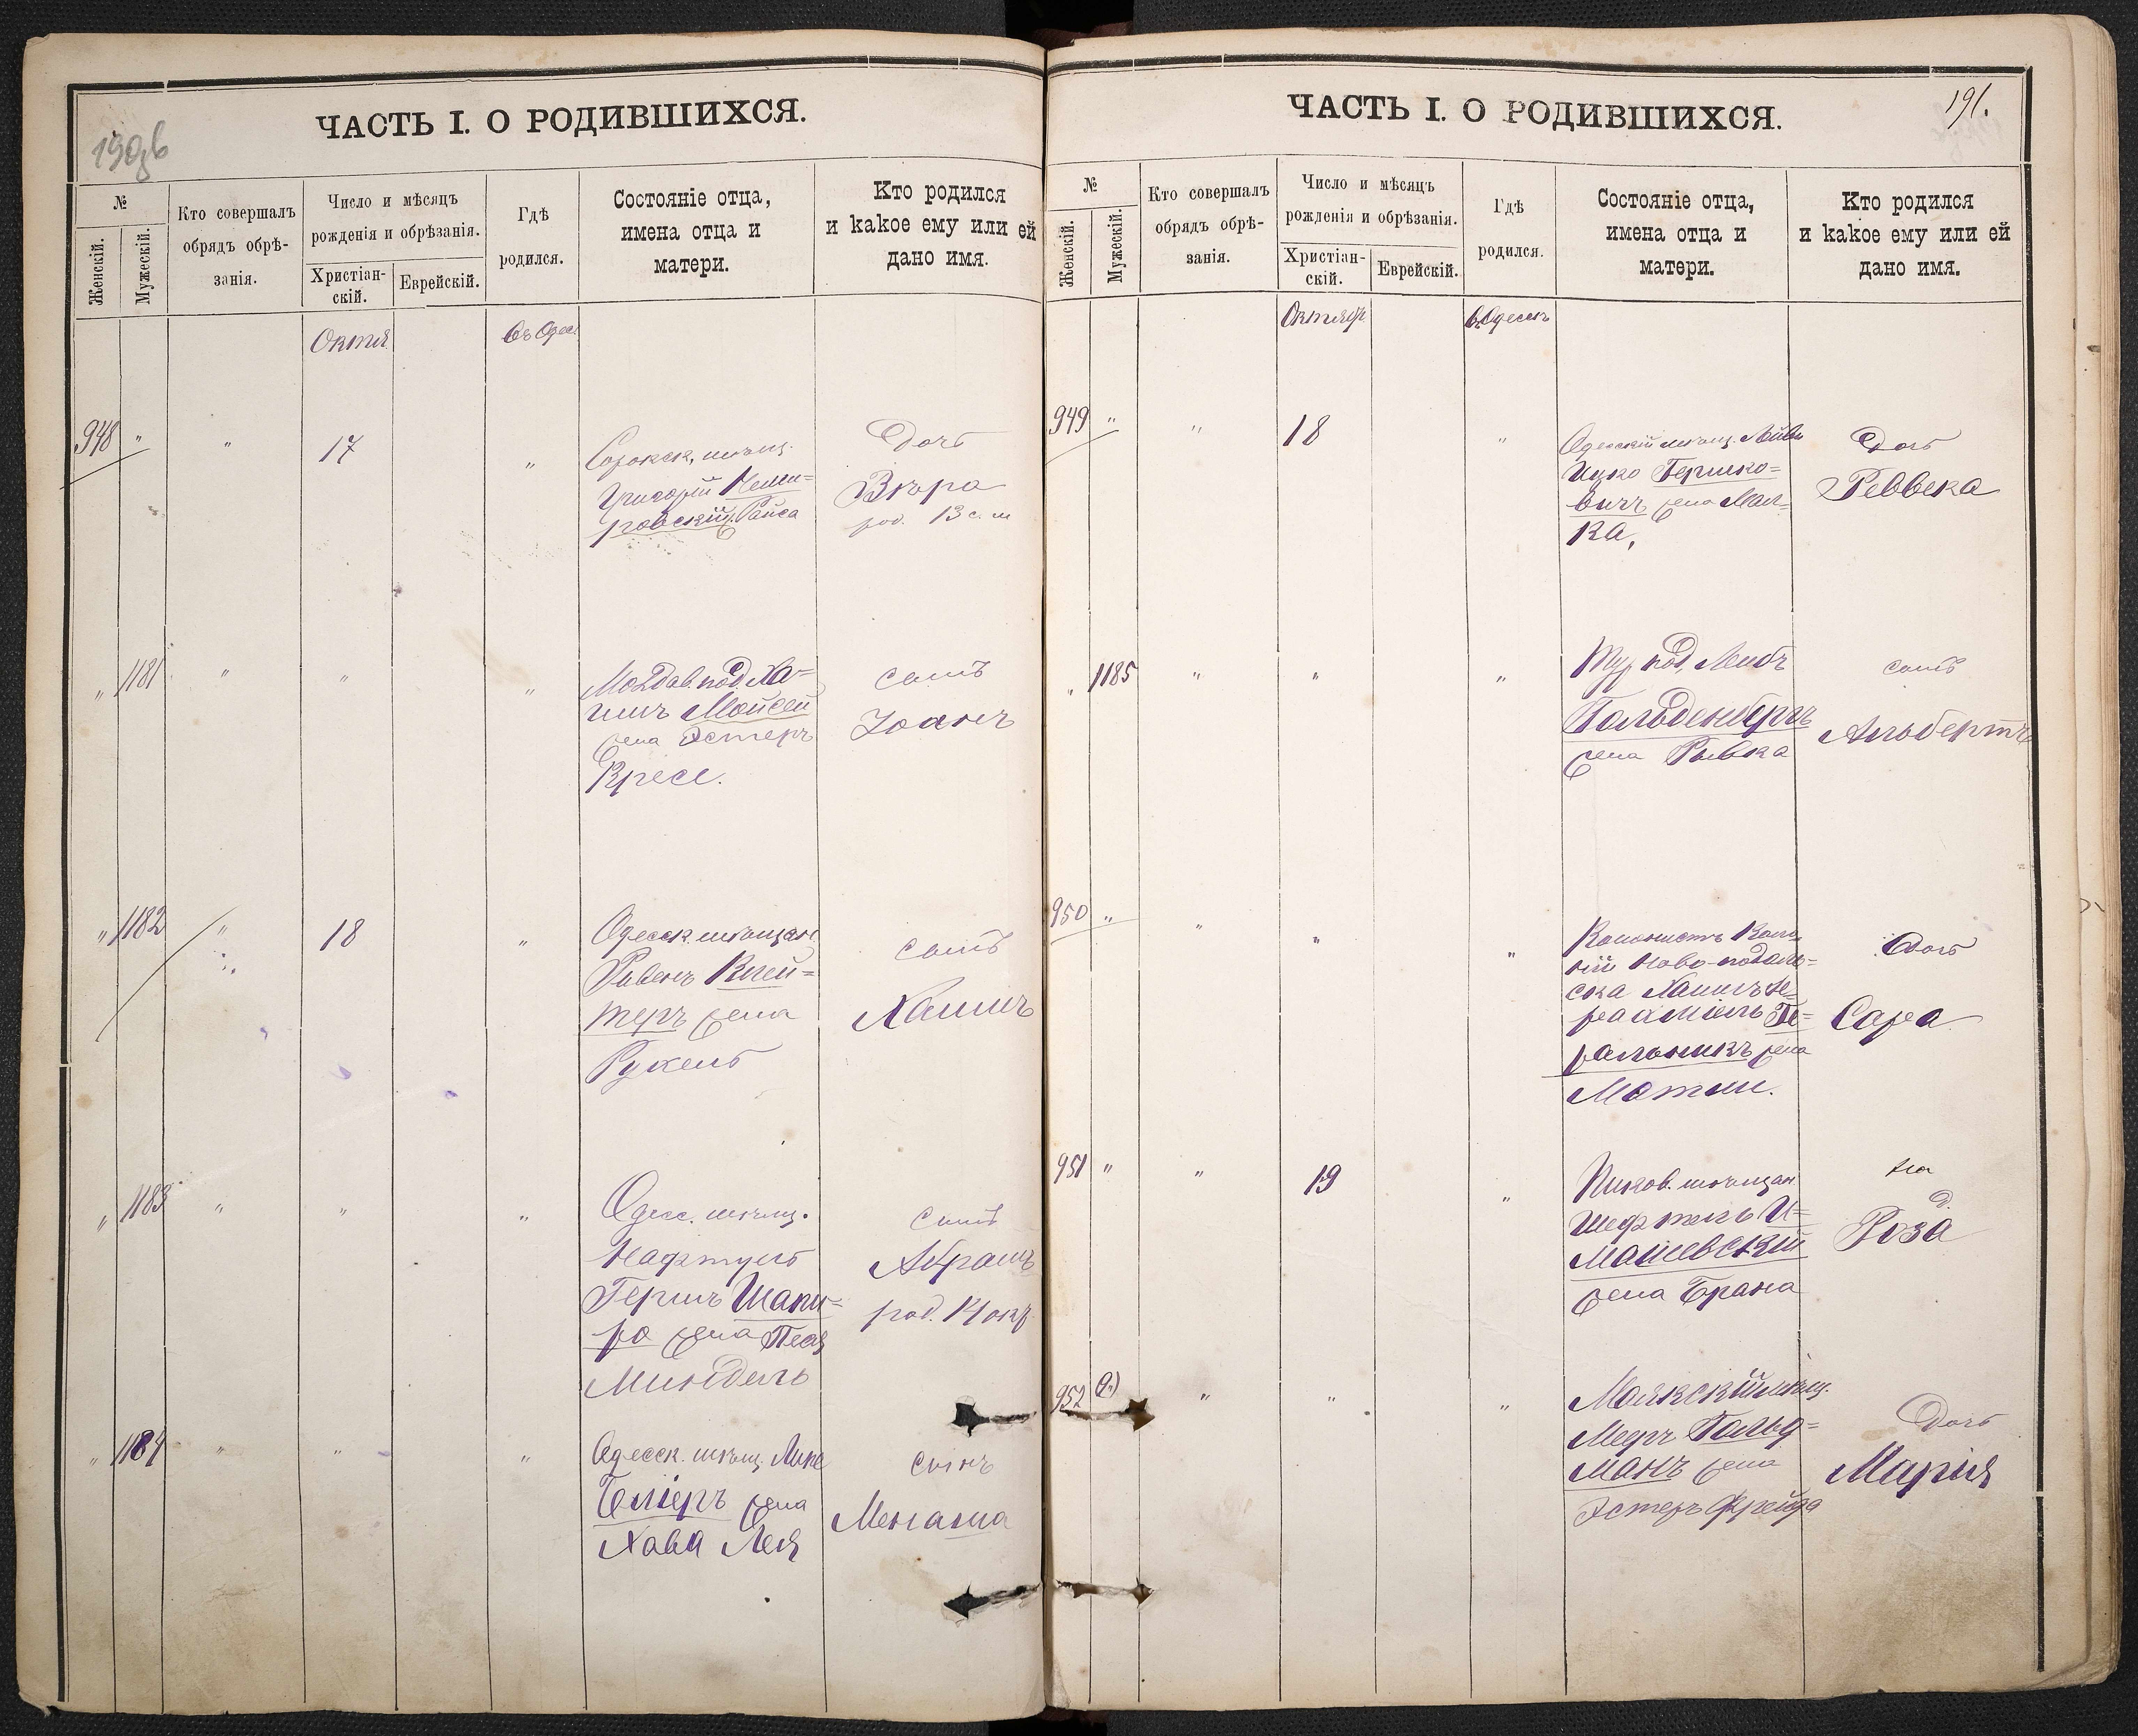 190об
ЧАСТЬ I. О РОДИВШИХСЯ.
№
Женскій.
Мужескій.
Кто совершалъ
обрядъ обрѣ-
занія.
Число и мѣсяцъ
рожденія и обрѣзанія.
Христіан-
скій.
Еврейскій.
Гдѣ
родился.
Состояніе отца,
имена отца и
матери.
Кто родился
и какое ему или ей
дано имя.
Октя
въ Одес
948 " " 17 "
Сорокск. мѣщ.
Григорій Неми-
ровскій, Раиса
Дочь
Вѣра
род. 13 с. м
" 1181 " " "
Молдав. под. Ха-
имъ Мойсей
жена Эстеръ
Кресс.
сынъ
Іоанъ
" 1182 " 18 "
Одесск. мѣщан
Рувенъ Клей-
теръ жена
Рухель
сынъ
Хаимъ
" 1183 " " "
Одесс. мѣщ.
Нафтуль
Гершъ Шапи-
ро жена Песя
Миндель
сынъ
Абрамъ
род. 14 окт
" 1184 " " "
Одесск. мѣщ. Липе
жена
Хава Лея
сынъ
Менаша
ЧАСТЬ I. О РОДИВШИХСЯ.
191.
№
Женскій.
Мужескій.
Кто совершалъ
обрядъ обрѣ-
занія.
Число и мѣсяцъ
рожденія и обрѣзанія.
Христіан-
скій.
Еврейскій.
Гдѣ
родился.
Состояніе отца,
имена отца и
матери.
Кто родился
и какое ему или ей
дано имя.
Октябр
в Одессѣ
949 " " 18 "
Одесскій мѣщ. Лейви
Ицко Гершко-
вичъ жена Мал-
ка,
Дочь
Реввека
" 1185 " " "
Тур. под. Лейбъ
Гольденбергъ
жена Рывка
сынъ
Альбертъ
950 " " " "
Колонистъ Коло-
ніи Ново-подоль-
ска Хаимъ Іе-
рахміель Ге-
ральникъ жена
Мотли.
Дочь
Сара
951 " " 19 "
мѣщан.
Шефтель И-
машевскій
жена Брана
на
Д.
Роза
952 " " "
Маякскій мѣщ.
Меєръ Гольд-
манъ жена
Эстеръ Фрейда
Дочь
Марія